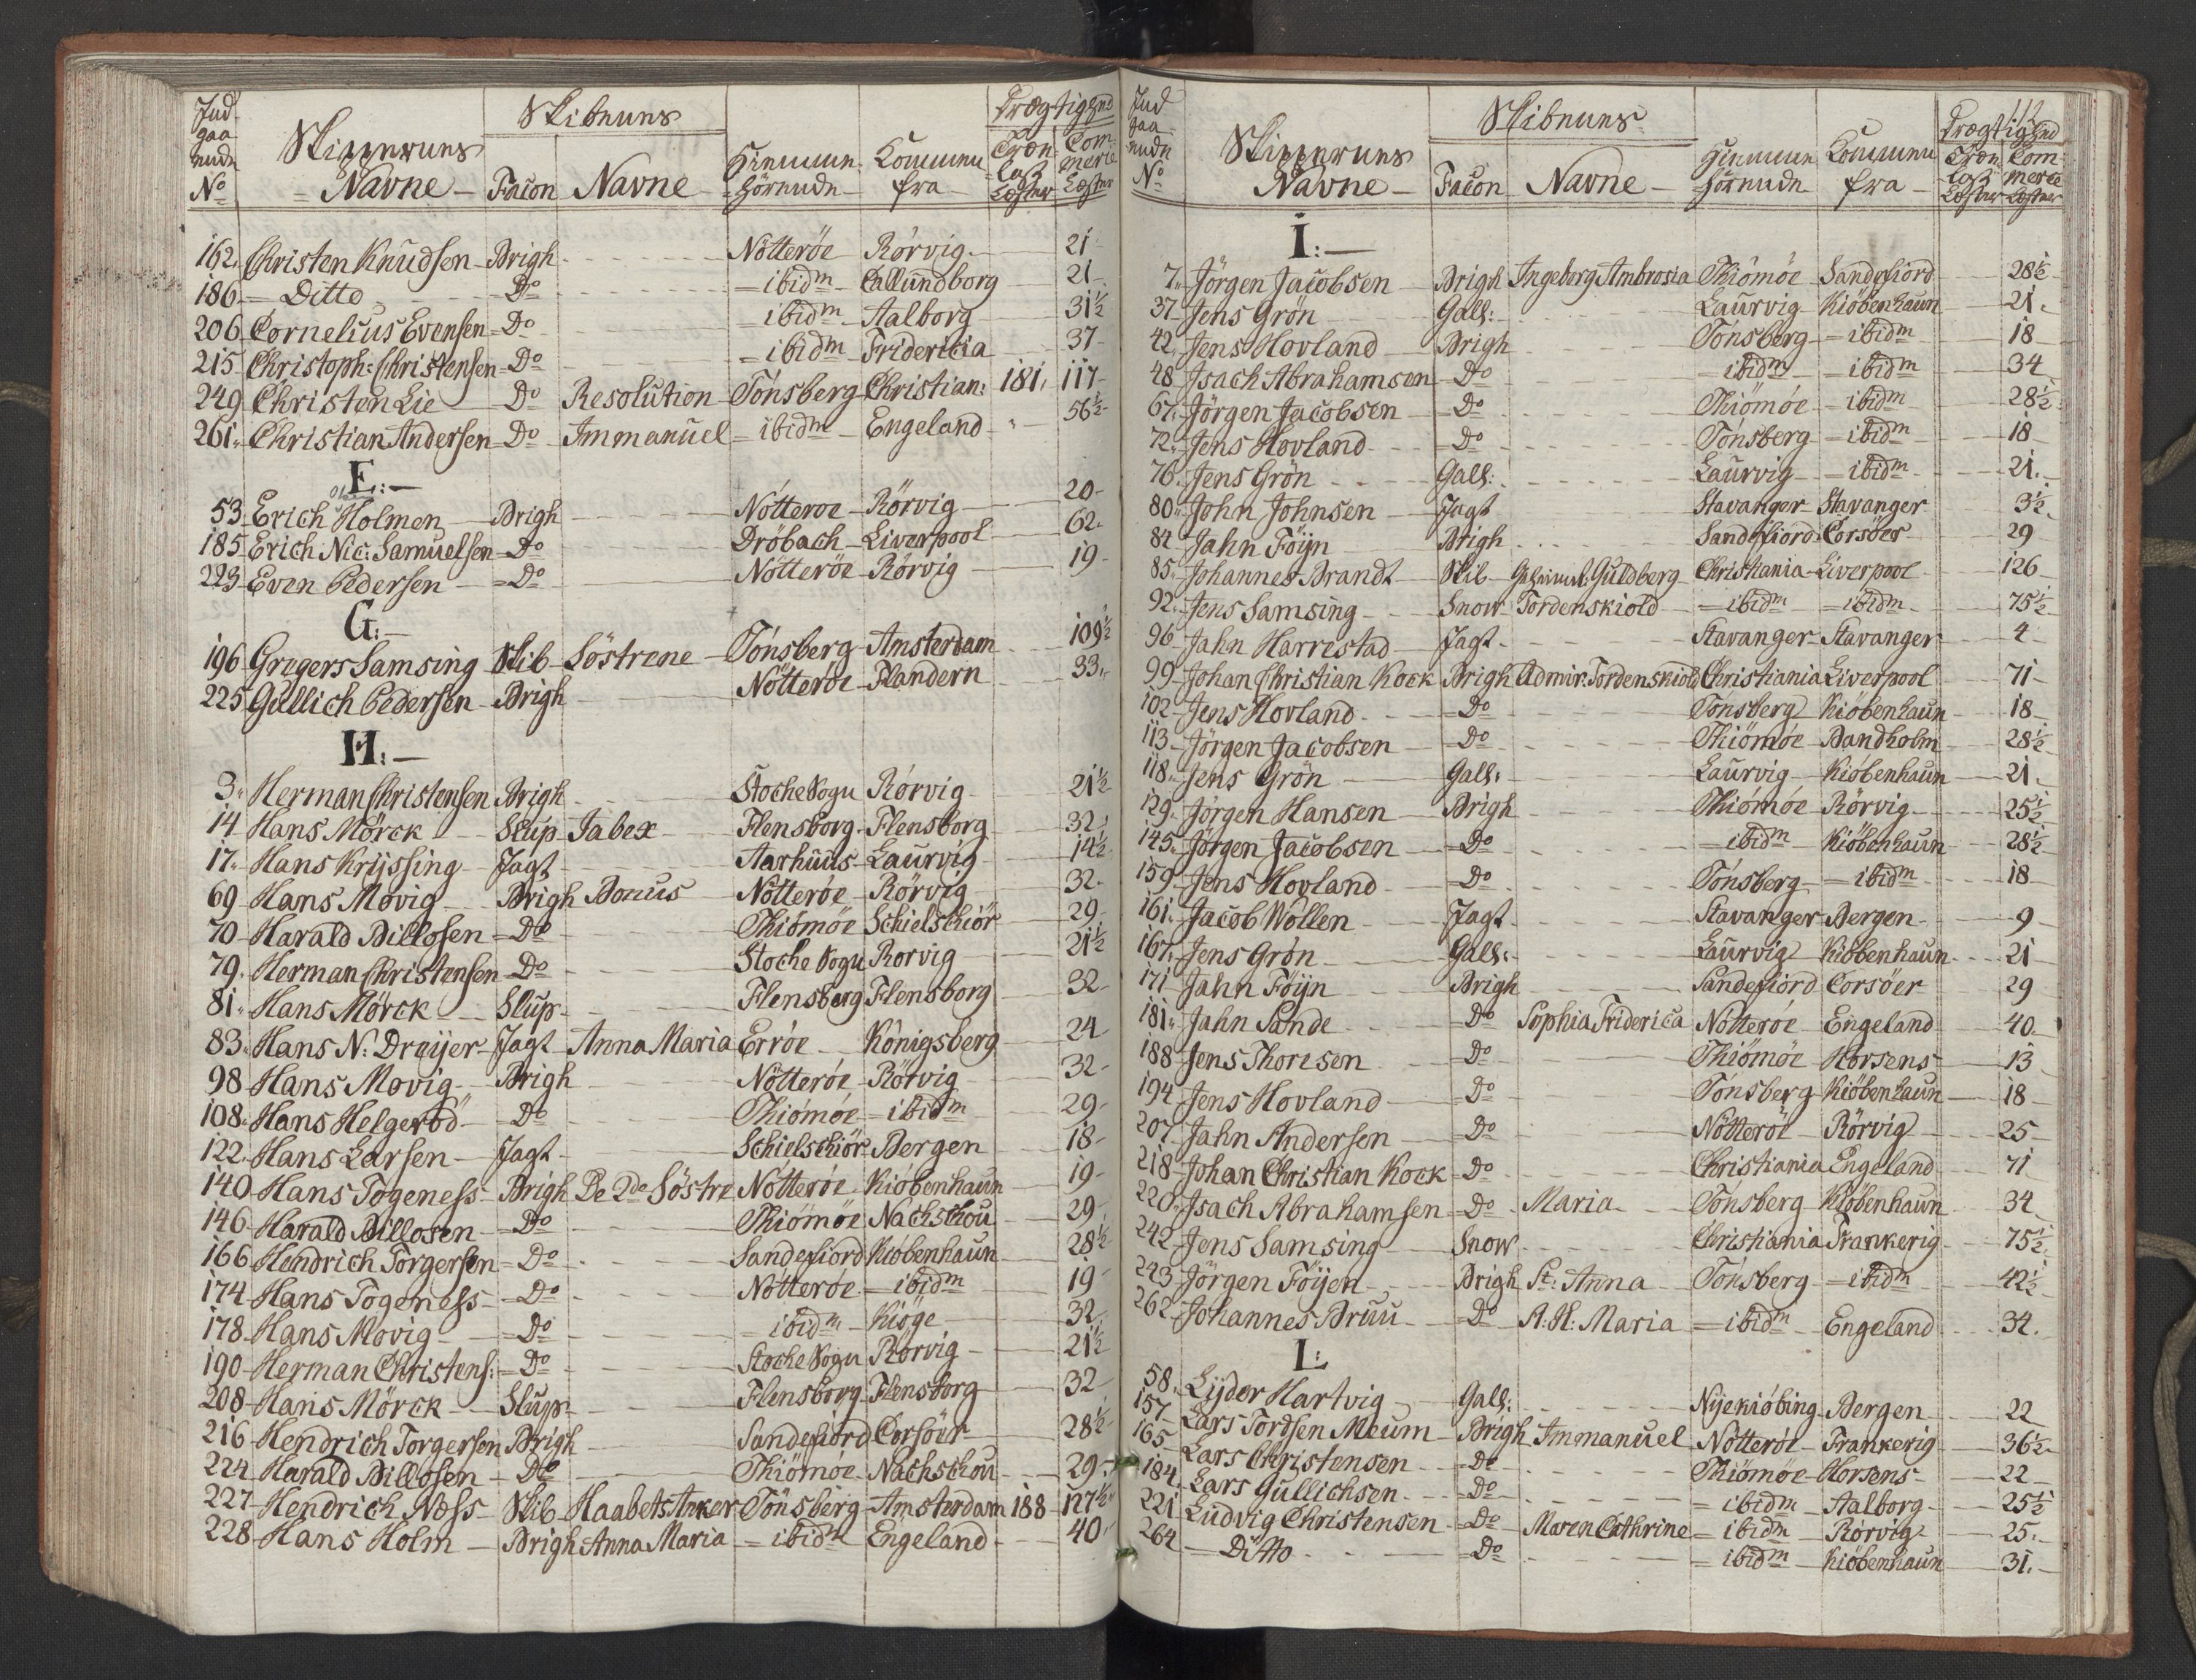 Ind
gaa
ende
No
Skipperens
Navne
Skibenens
Facon Navne
Hiemme
hörende
Kommen
fra
Drægtighed
Træ
Last
Læster
Com-
merce
Læster
162. Christen Knudsen Brigh Nötteröe Rörvig 21
186 Ditto Do ibidm Callundborg 21
206 Cornelius Evensen Do ibidm Aalborg 31½
215 Christoph: Christensen Do ibidm Fridericia 37
249 Christen Lie Do Resolution Tönsberg Christian: 181. 117
261. Christian Andersen Do Immanuel ibidm Engeland " 56½
E:
53 Erich Holmen Brigh Nötteroe Rörvig 20
185 Erich Nic: Samuelsen Do Dröbach Liverpool 62
223 Even Pedersen Do Nötteröe Rörvig 19
G:
196 Gregers Samsing Skib Söstrene Tönsberg Amsterdam 109½
225 Gullich Pedersen Brigh Nötteröe Flandern 33
H:
3. Herman Christensen Brigh Stoche Sogn Rörvig 21½
14 Hans Mörck Slup Jabex Flensborg Flensborg 32
17. Hans Krijssing Jagt Aarhuus Laurvig 14½
69 Hans Movig Brigh Bonus Nötteröe Rörvig 32
70 Harald Billosen Do Thiömöe Schielschiör 29
79. Herman Christensen Do Stoche Sogn Rorvig 21½
81. Hans Mörck Slup Flensberg Flensborg 32
83. Hans N: Dreijer Jagt Anna Maria Erröe Königsberg 24
98 Hans Movig Brigh Nötteröe Rörvig 32
108. Hans Helgeröd Do Thiömöe ibidm 29
122. Hans Larsen Jagt Schielschiör Bergen 18
140 Hans Togeness Brigh De 2de Söstre Nötteröe Kiöbenhaun 19
146 Harald Billosen Do Thiömöe Nachschou 29
166 Hendrich Torgersen Do Sandefiord Kiöbenhaun 28½
174 Hans Togeness Do Nötteröe ibidm 19
178 Hans Movig Do ibidm Kiöge 32
190 Herman Christens: Do Stoche Sogn Rörvig 21½
208 Hans Mörck Slup Flensborg Flensborg 32
216 Hendrich Torgersen Brigh Sandefiord Corsöer 28½
224 Harald Billosen Do Thiömöe Nachschou 29
227 Hendrich Ness Skib Haabets Anker Tönsberg Amsterdam 188 127½
228 Hans Holm Brigh Anna Maria ibidm Engeland 40
112
Ind
gaa
ende
No
Skipperens
Navne
Skibenens
Facon Navne
Hiemme
hörende
Kommen
fra
Drægtighed
Træ
Last
Læster
Com-
merce
Læster
I:
7. Jörgen Jacobsen Brigh Ingeborg Ambrosia Thiömöe Sandefiord 28½
37 Jens Grön Gall: Laurvig Kiöbenhaun 21
42. Jens Hovland Brigh Tönsberg ibidm 18
48 Isach Abrahamsen Do ibidm ibidm 34
67. Jörgen Jacobsen Do Thiömöe ibidm 28½
72. Jens Hovland Do Tönsberg ibidm 18
76. Jens Grön Gall: Laurvig ibidm 21.
80. John Johnsen Jagt Stavanger Stavanger 3½
84 Jahn Föijn Brigh Sandefiord Corsöer 29
85. Johannes Brandt Skib Geheimr: Guldberg Christiania Liverpool 126
92. Jens Samsing Snow Tordenskiold ibidm ibidm 75½
96 Jahn Harrestad Jagt Stavanger Stavanger 4
99 Johan Christian Kock Brigh Admir: Tordenskiold Christiania Liverpool 71
102 Jens Hovland Do Tönsberg Kiöbenhaun 18
113 Jörgen Jacobsen Do Thiömöe Bandholm 28½
118. Jens Grön Gall: Laurvig Kiöbenhaun 21
129. Jörgen Hansen Brigh Thiömöe Rörvig 25½
145. Jörgen Jacobsen Do ibidm Kiöbenhaun 28½
159 Jens Hovland Do Tönsberg ibidm 18
161. Jacob Wollen Jagt Stavanger Bergen 9
167. Jens Grön Gall: Laurvig Kiöbenhaun 21
171 Jahn Föijn Brigh Sandefiord Corsöer 29
181. Jahn Sande Do Sophia Friderica Nötteröe Engeland 40
188 Jens Thoresen Do Thiömöe Horsens 13
194 Jens Hovland Do Tönsberg Kiöbenhaun 18
207. Jahn Andersen Do Nötteröe Rörvig 25
218 Johan Christian Kock Do Christiania Engeland 71
220. Isach Abrahamsen Do Maria Tönsberg Kiöbenhaun 34
242 Jens Samsing Snow Christiania Frankerig 75½
243 Jörgen Föijen Brigh St: Anna Tönsberg ibidm 42½
262 Johannes Bruu Do A. H: Maria ibidm Engeland 34.
L:
58. Lijder Hartvig Gall: Nijekiöbing Bergen 22
157 Lars Tordsen Meum Brigh Immanuel Nötteröe Frankerig 36½
165 Lars Christensen Do Thiömöe Horsens 22
184. Lars Gullichsen Do ibidm Aalborg 25½
221 Ludvig Christensen Do Maren Cathrine ibidm Rörvig 25
264 Ditto Do ibidm Kiöbenhaun 31.